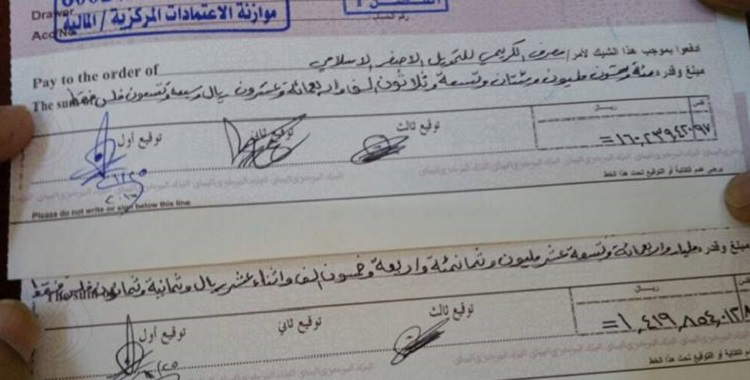 Drawer
موازنة الاعتمادات المركزية / المالية
Acc No
رقم الحساب
ادفعوا بموجب هذا الشيك لأمر/ مصرف الكريمي للتمويل الاصغر الاسلامي
Pay to the order of
مبلغ وقدره مئة وستون مليون ومئتان وتسعة وثلاثون الف واربعمائة وعشرون ريال وسبعة وتسعون فلس فقط
The sum of
توقيع أول
توقيع ثاني
توقيع ثالث
ريال
فلس
=١٦٠,٢٣٩,٤٢٠/٩٧
يرجى عدم الكتابة أو التوقيع تحت هذا الخط
Please do not write or sign below this line
مبلغ وقدره مليار واربعمائة وتسعة عشر مليون وثمانمئة واربعة وخمسون الف واثناء عشر ريال وثمانية وثمانون فلس فقط
The sum of
توقيع أول
توقيع ثاني
توقيع ثالث
ريال
=١,٤١٩,٨٥٤,٠١٢/٨
يرجى عدم الكتابة أو التوقيع تحت هذا الخط